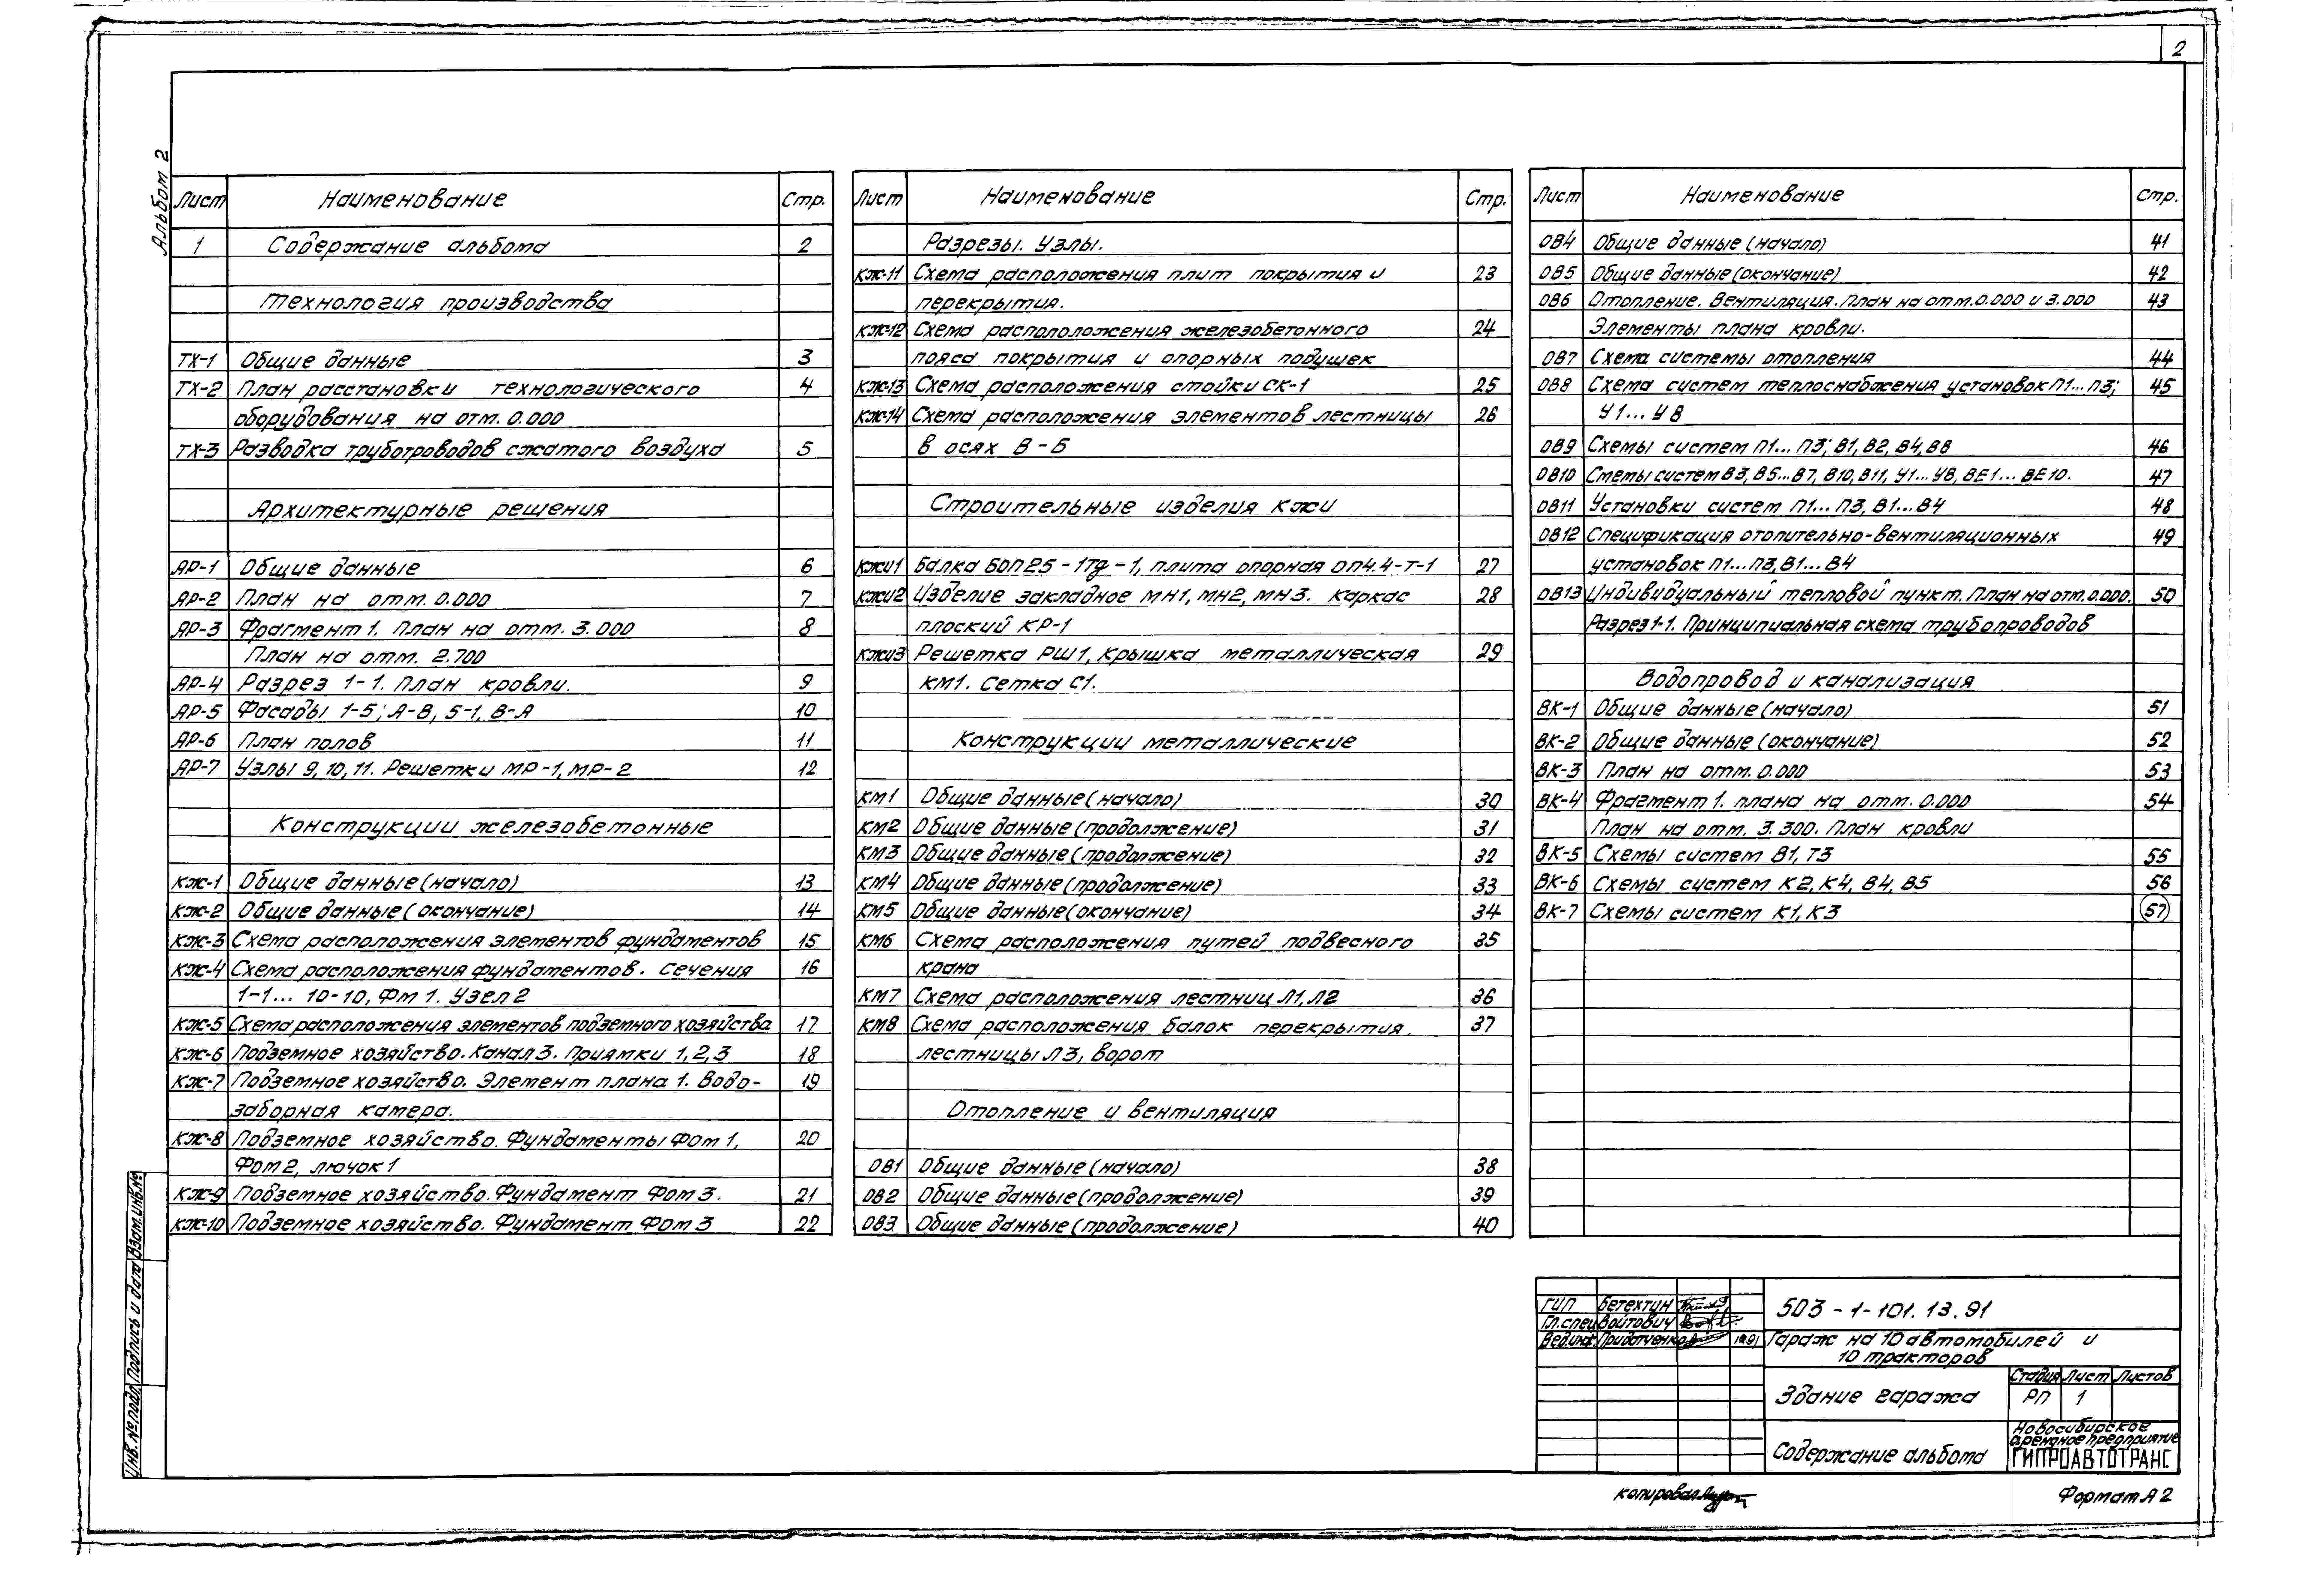 2
Альбом 2
Лист Наименование Стр.
1 Содержание альбома 2
Технология производства
ТХ-1 Общие данные 3
ТХ-2 План расстановки технологического 4
оборудования на отм. 0.000
ТХ-3 Разводка трубопроводов сжатого воздуха 5
Архитектурные решения
АР-1 Общие данные 6
АР-2 План на отм. 0.000 7
АР-3 Фрагмент 1. План на отм. 3.000 8
План на отм. 2.700
АР-4 Разрез 1-1. План кровли. 9
АР-5 Фасады 1-5; А-В, 5-1, В-А 10
АР-6 План полов 11
АР-7 Узлы 9, 10, 11. Решетки МР-1, МР-2 12
Конструкции железобетонные
КЖ-1 Общие данные (начало) 13
КЖ-2 Общие данные (окончание) 14
КЖ-3 Схема расположения элементов фундаментов 15
КЖ-4 Схема расположения фундаментов. Сечения 16
1-1... 10-10, Фм 1. Узел 2
КЖ-5 Схема расположения элементов подземного хозяйства 17
КЖ-6 Подземное хозяйство. Канал 3. Приямки 1, 2, 3 18
КЖ-7 Подземное хозяйство. Элемент плана 1. Водо- 19
заборная камера.
КЖ-8 Подземное хозяйство. Фундаменты Фом 1, 20
Фом 2, лючок 1
КЖ-9 Подземное хозяйство. Фундамент Фом 3. 21
КЖ-10 Подземное хозяйство. Фундамент Фом 3 22
Лист Наименование Стр.
Разрезы. Узлы.
КЖ-11 Схема расположения плит покрытия и 23
перекрытия.
КЖ-12 Схема распололожения железобетонного 24
пояса покрытия и опорных подушек
КЖ-13 Схема расположения стойки СК-1 25
КЖ-14 Схема расположения элементов лестницы 26
в осях В - Б
Строительные изделия КЖИ
КЖИ1 Балка БОП 25 - 1тд - 1, плита опорная ОП4.4-Т-1 27
КЖИ2 Изделие закладное МН1, МН2, МН3. Каркас 28
плоский КР-1
КЖИ3 Решетка РШ1, крышка металлическая 29
КМ1. Сетка С1.
Конструкции металлические
КМ1 Общие данные (начало) 30
КМ2 Общие данные (продолжение) 31
КМ3 Общие данные (продолжение) 32
КМ4 Общие данные (продолжение) 33
КМ5 Общие данные (окончание) 34
КМ6 Схема расположения путей подвесного 35
крана
КМ7 Схема расположения лестниц Л1, Л2 36
КМ8 Схема расположения балок перекрытия, 37
лестницы Л3, ворот
Отопление и вентиляция
ОВ1 Общие данные (начало) 38
ОВ2 Общие данные (продолжение) 39
ОВ3 Общие данные (продолжение) 40
Лист Наименование Стр.
ОВ4 Общие данные (начало) 41
ОВ5 Общие данные (окончание) 42
ОВ6 Отопление. Вентиляция. План на отм. 0.000 и 3.000 43
Элементы плана кровли.
ОВ7 Схема системы отопления 44
ОВ8 Схема систем теплоснабжения установок П1...П3; 45
У1... У8
ОВ9 Схемы систем П1... П3; В1, В2, В4, В8 46
ОВ10 Сметы систем В3, В5...В7, В10, В11, У1... У8, ВЕ1... ВЕ10. 47
ОВ11 Установки систем П1... П3, В1...В4 48
ОВ12 Спецификация отопительно-вентиляционных 49
установок П1...П3, В1...В4
ОВ13 Индивидуальный тепловой пункт. План на отм. 0.000. 50
Разрез 1-1. Принципиальная схема трубопроводов
Водопровод и канализация
ВК-1 Общие данные (начало) 51
ВК-2 Общие данные (окончание) 52
ВК-3 План на отм. 0.000 53
ВК-4 Фрагмент 1. плана на отм. 0.000 54
План на отм. 3.300. План кровли
ВК-5 Схемы систем В1, Т3 55
ВК-6 Схемы систем К2, К4, В4, В5 56
ВК-7 Схемы систем К1, К3 57
Инв. № подл. Подпись и дата Взам. инв. №
ГИП Бетехтин
Гл. спец Войтович
Вед. инж. Придатченко
503 - 1 - 101. 13. 91
Гараж на 10 автомобилей и
10 тракторов
Здание гаража
Стадия Лист Листов
РП 1
Содержание альбома
Новосибирское
арендное предприятие
ГИПРОАВТОТРАНС
копировал
Формат А2